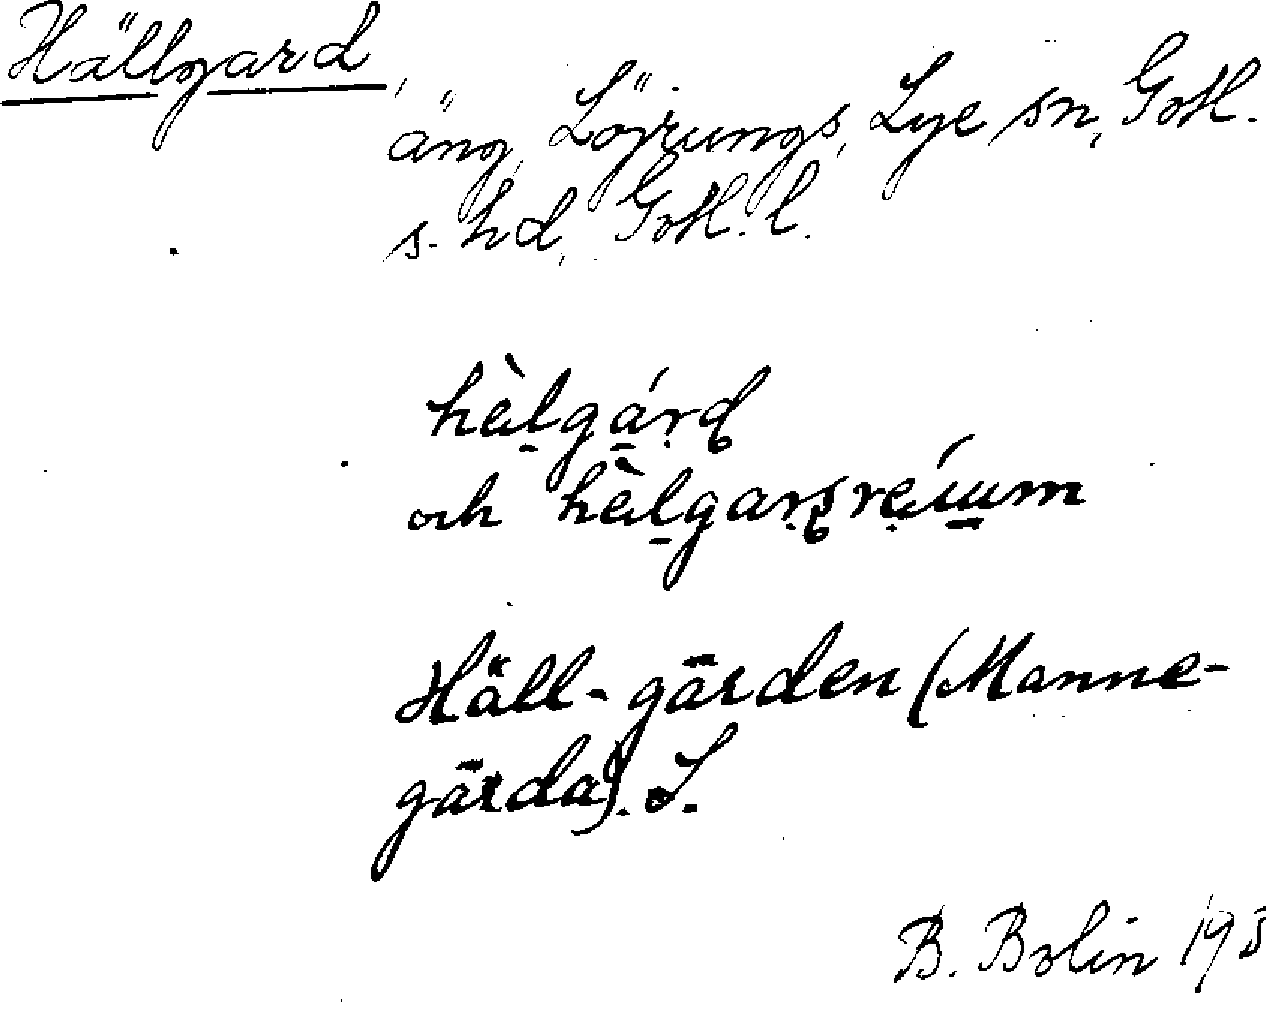 Hällgard,
äng, Löjrungs, Lye sn, Gotl.
s. hd, Gotl. l.
hèlgárd
och hèlgarsréium
Häll-gärden (Manne-
gärda). S.
B. Bolin 193